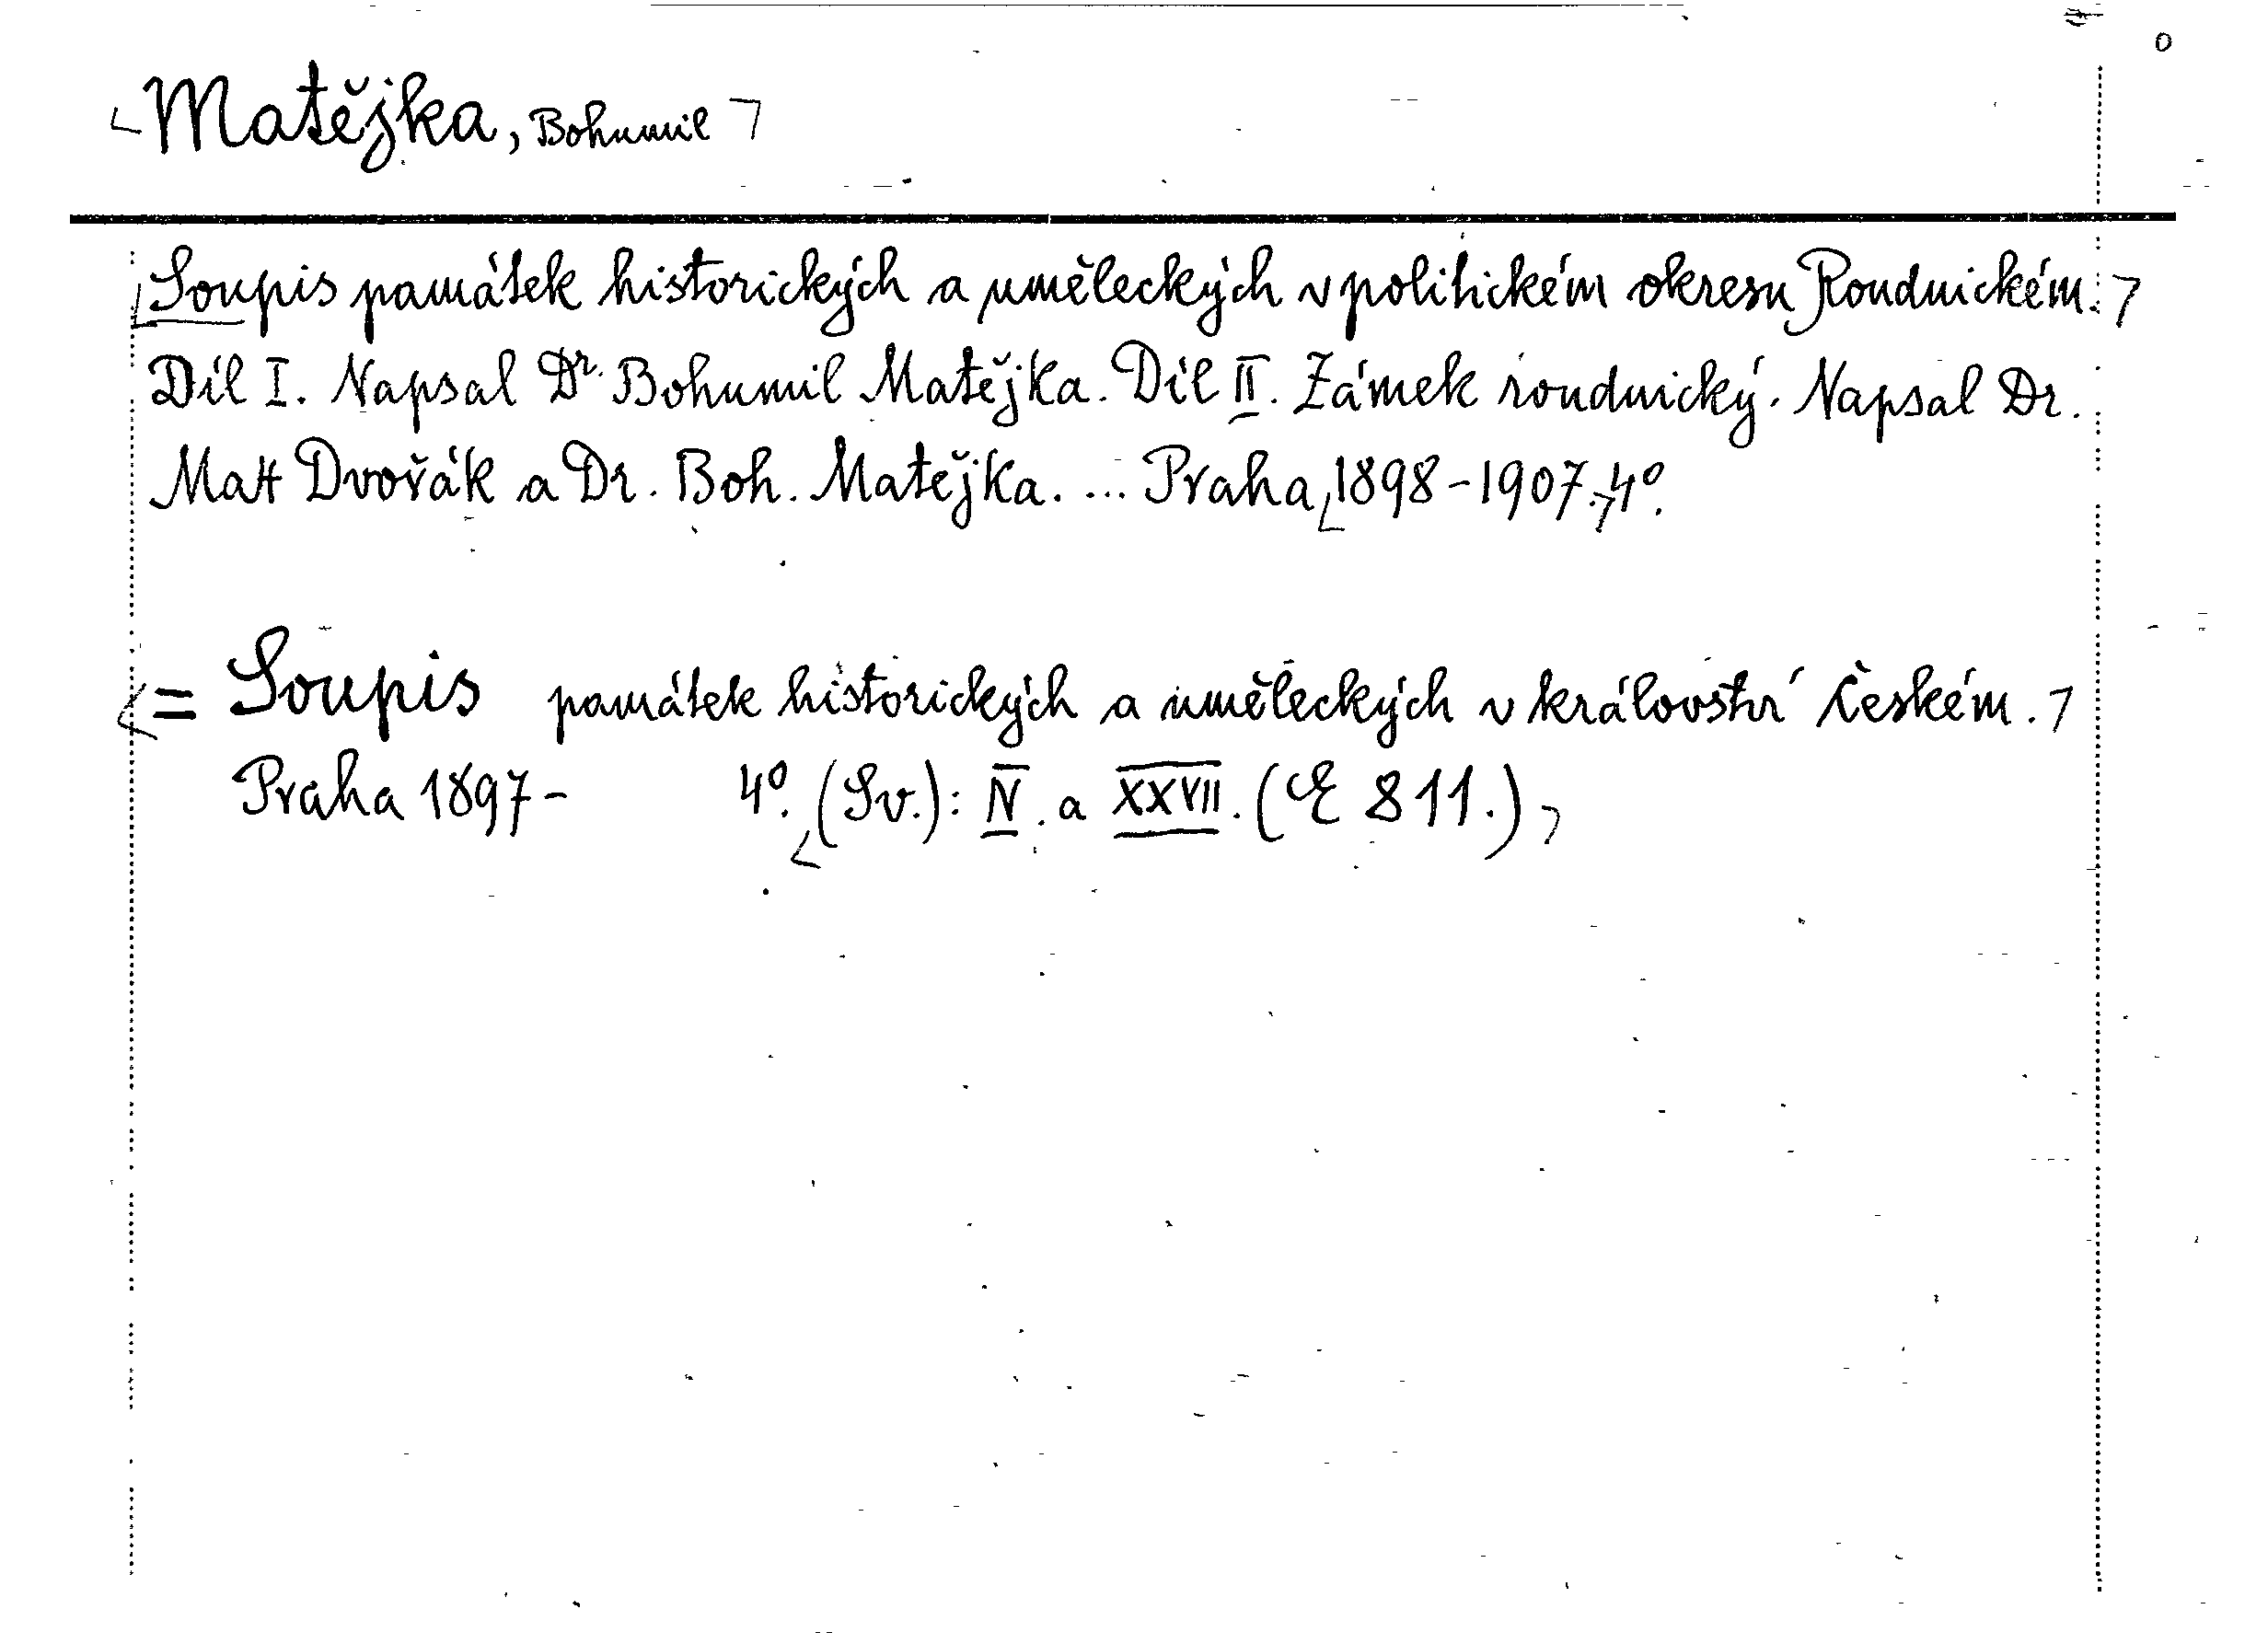 Matějka, Bohumil
Soupis památek historických a uměleckých v politickém okresu Roudnickém.
Díl I. Napsal Dr. Bohumil Matějka. Díl II. Zámek roudnický. Napsal Dr.
Max Dvořák a Dr. Boh. Matějka. ... Praha, 1898-1907. 4º.
= Soupis památek historických a uměleckých v království Českém.
Praha 1897- 4º. (Sv.): IV. a XXVII. (E 811.)